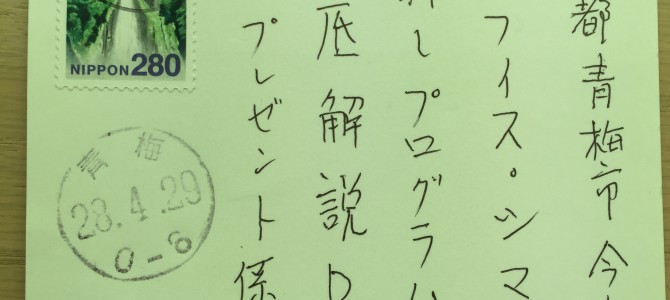 都青梅市今
フイス・シマ
しプログラム
底解説D
プレゼント係
NIPPON 280
青梅
28.4.29
0-6